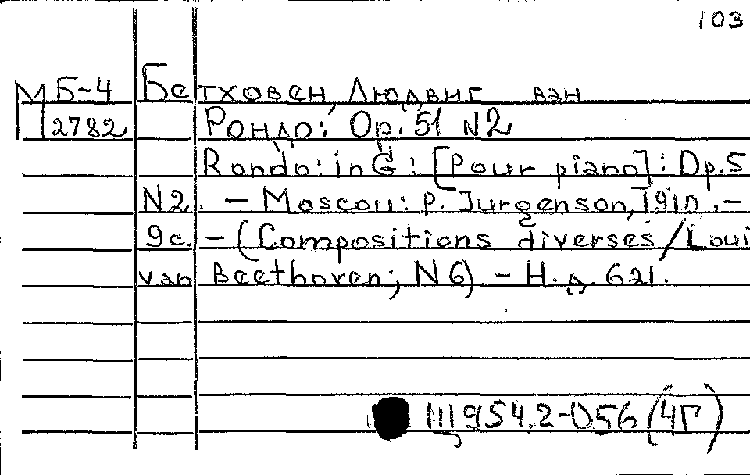 103
МБ-4 Бетховен, Людвиг ван
2782 Рондо: Op. 51 N2
Rondo: in G: [pour piano]: Op. 5
N2. – Moscou: P. Jurgenson, 1910. –
9с. – (Compositions diverses / Loui
van Beethoven; N 6) – Н. д. 621.
Щ954.2-056(4Г)